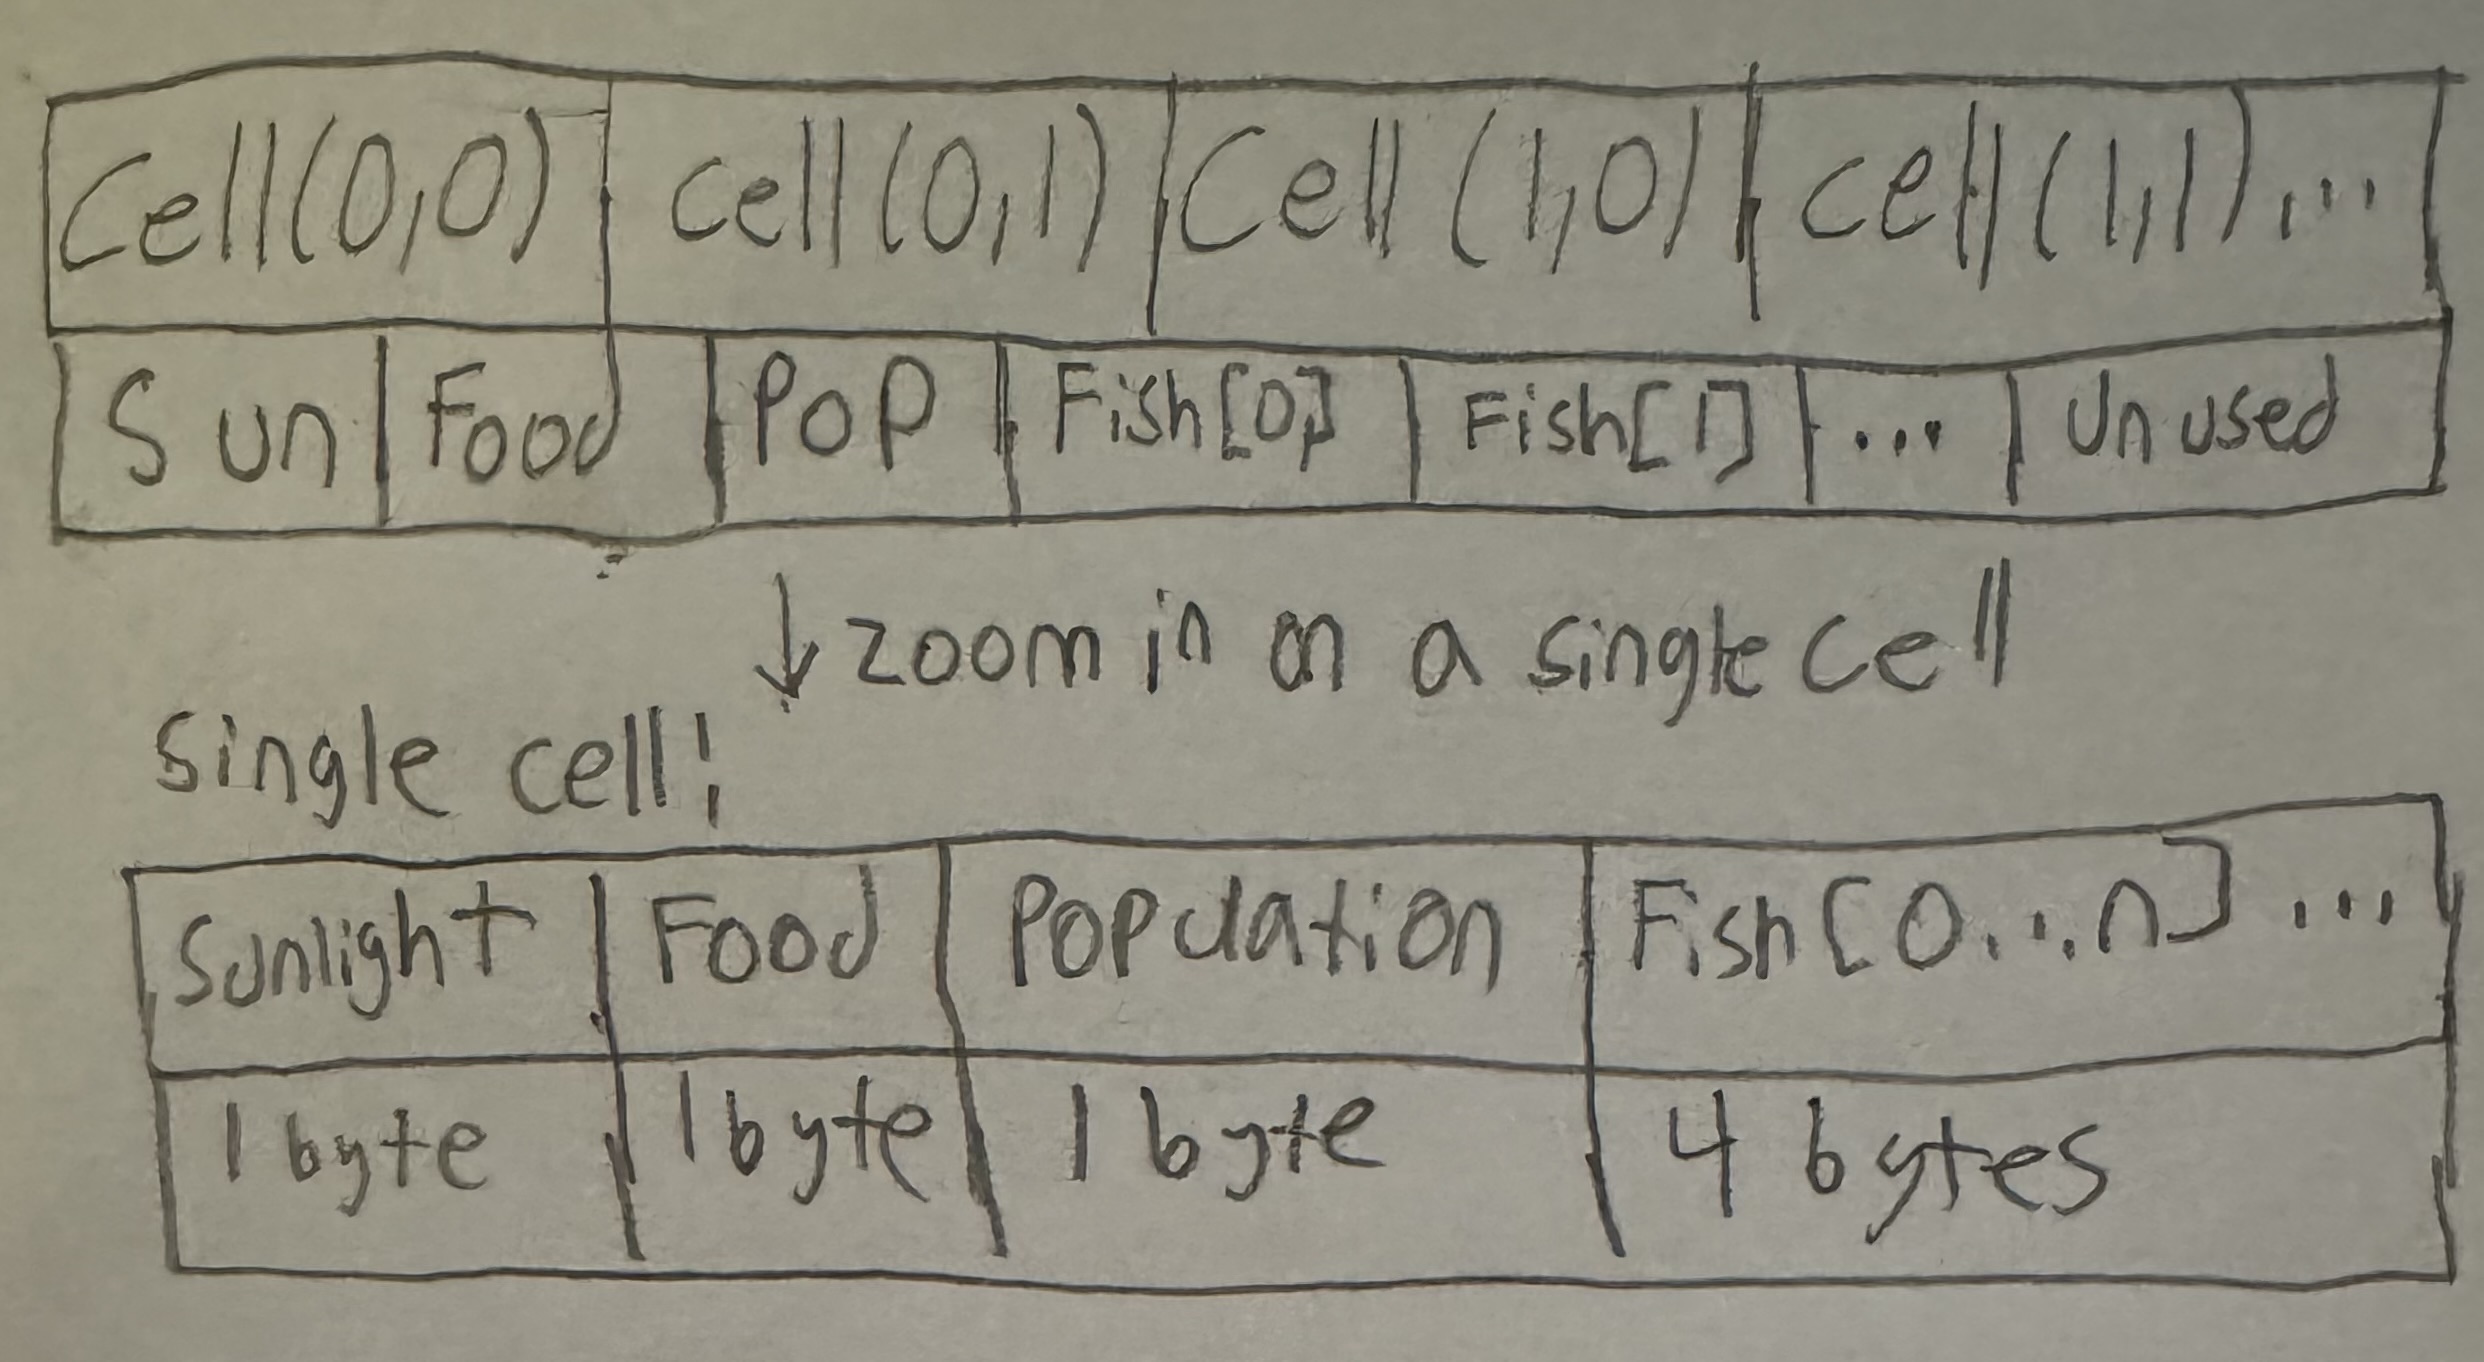 Cell(0,0) cell(0,1) Cell(1,0) cell(1,1)...
Sun Food POP Fish[0] Fish[1] ... Unused
↓ zoom in on a single cell
single cell:
Sunlight Food Population Fish[0...n]...
1 byte 1 byte 1 byte 4 bytes